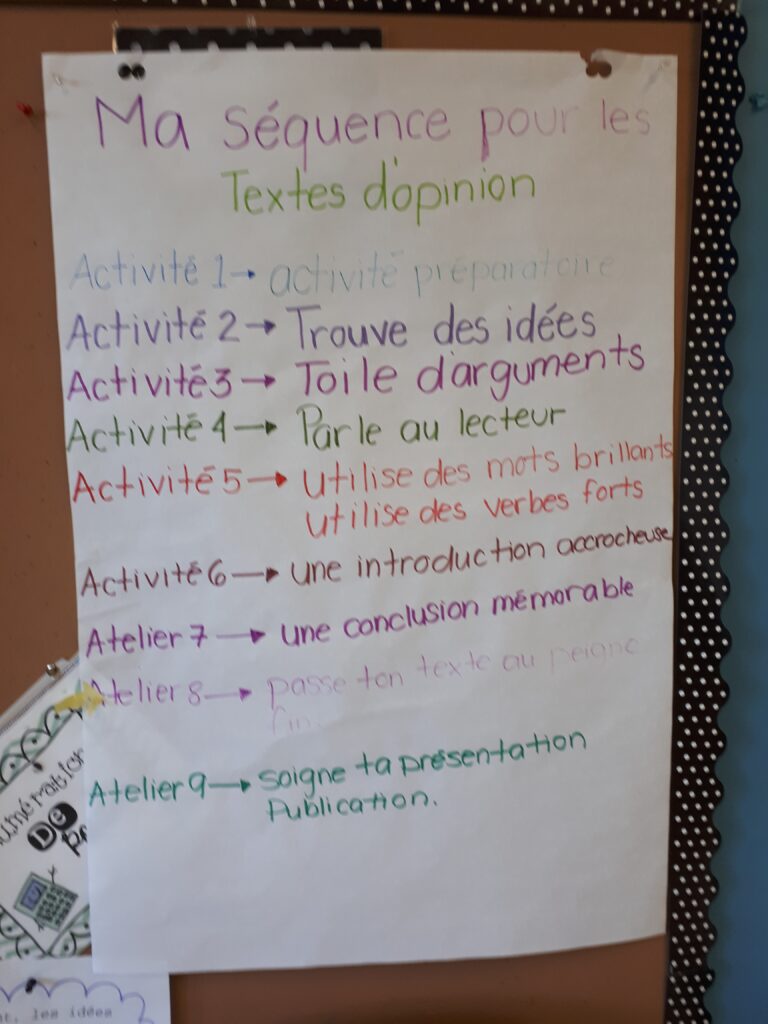 Ma séquence pour les
Textes d'opinion
Activité 1 → activité préparatoire
Activité 2 → Trouve des idées
Activité 3 → Toile d'arguments
Activité 4 → Parle au lecteur
Activité 5 → utilise des mots brillants
utilise des verbes forts
Activité 6 → une introduction accrocheuse
Atelier 7 → une conclusion mémorable
Atelier 8 → passe ton texte au peigne
fin.
Atelier 9 → soigne ta présentation
Publication.
DE
les idées